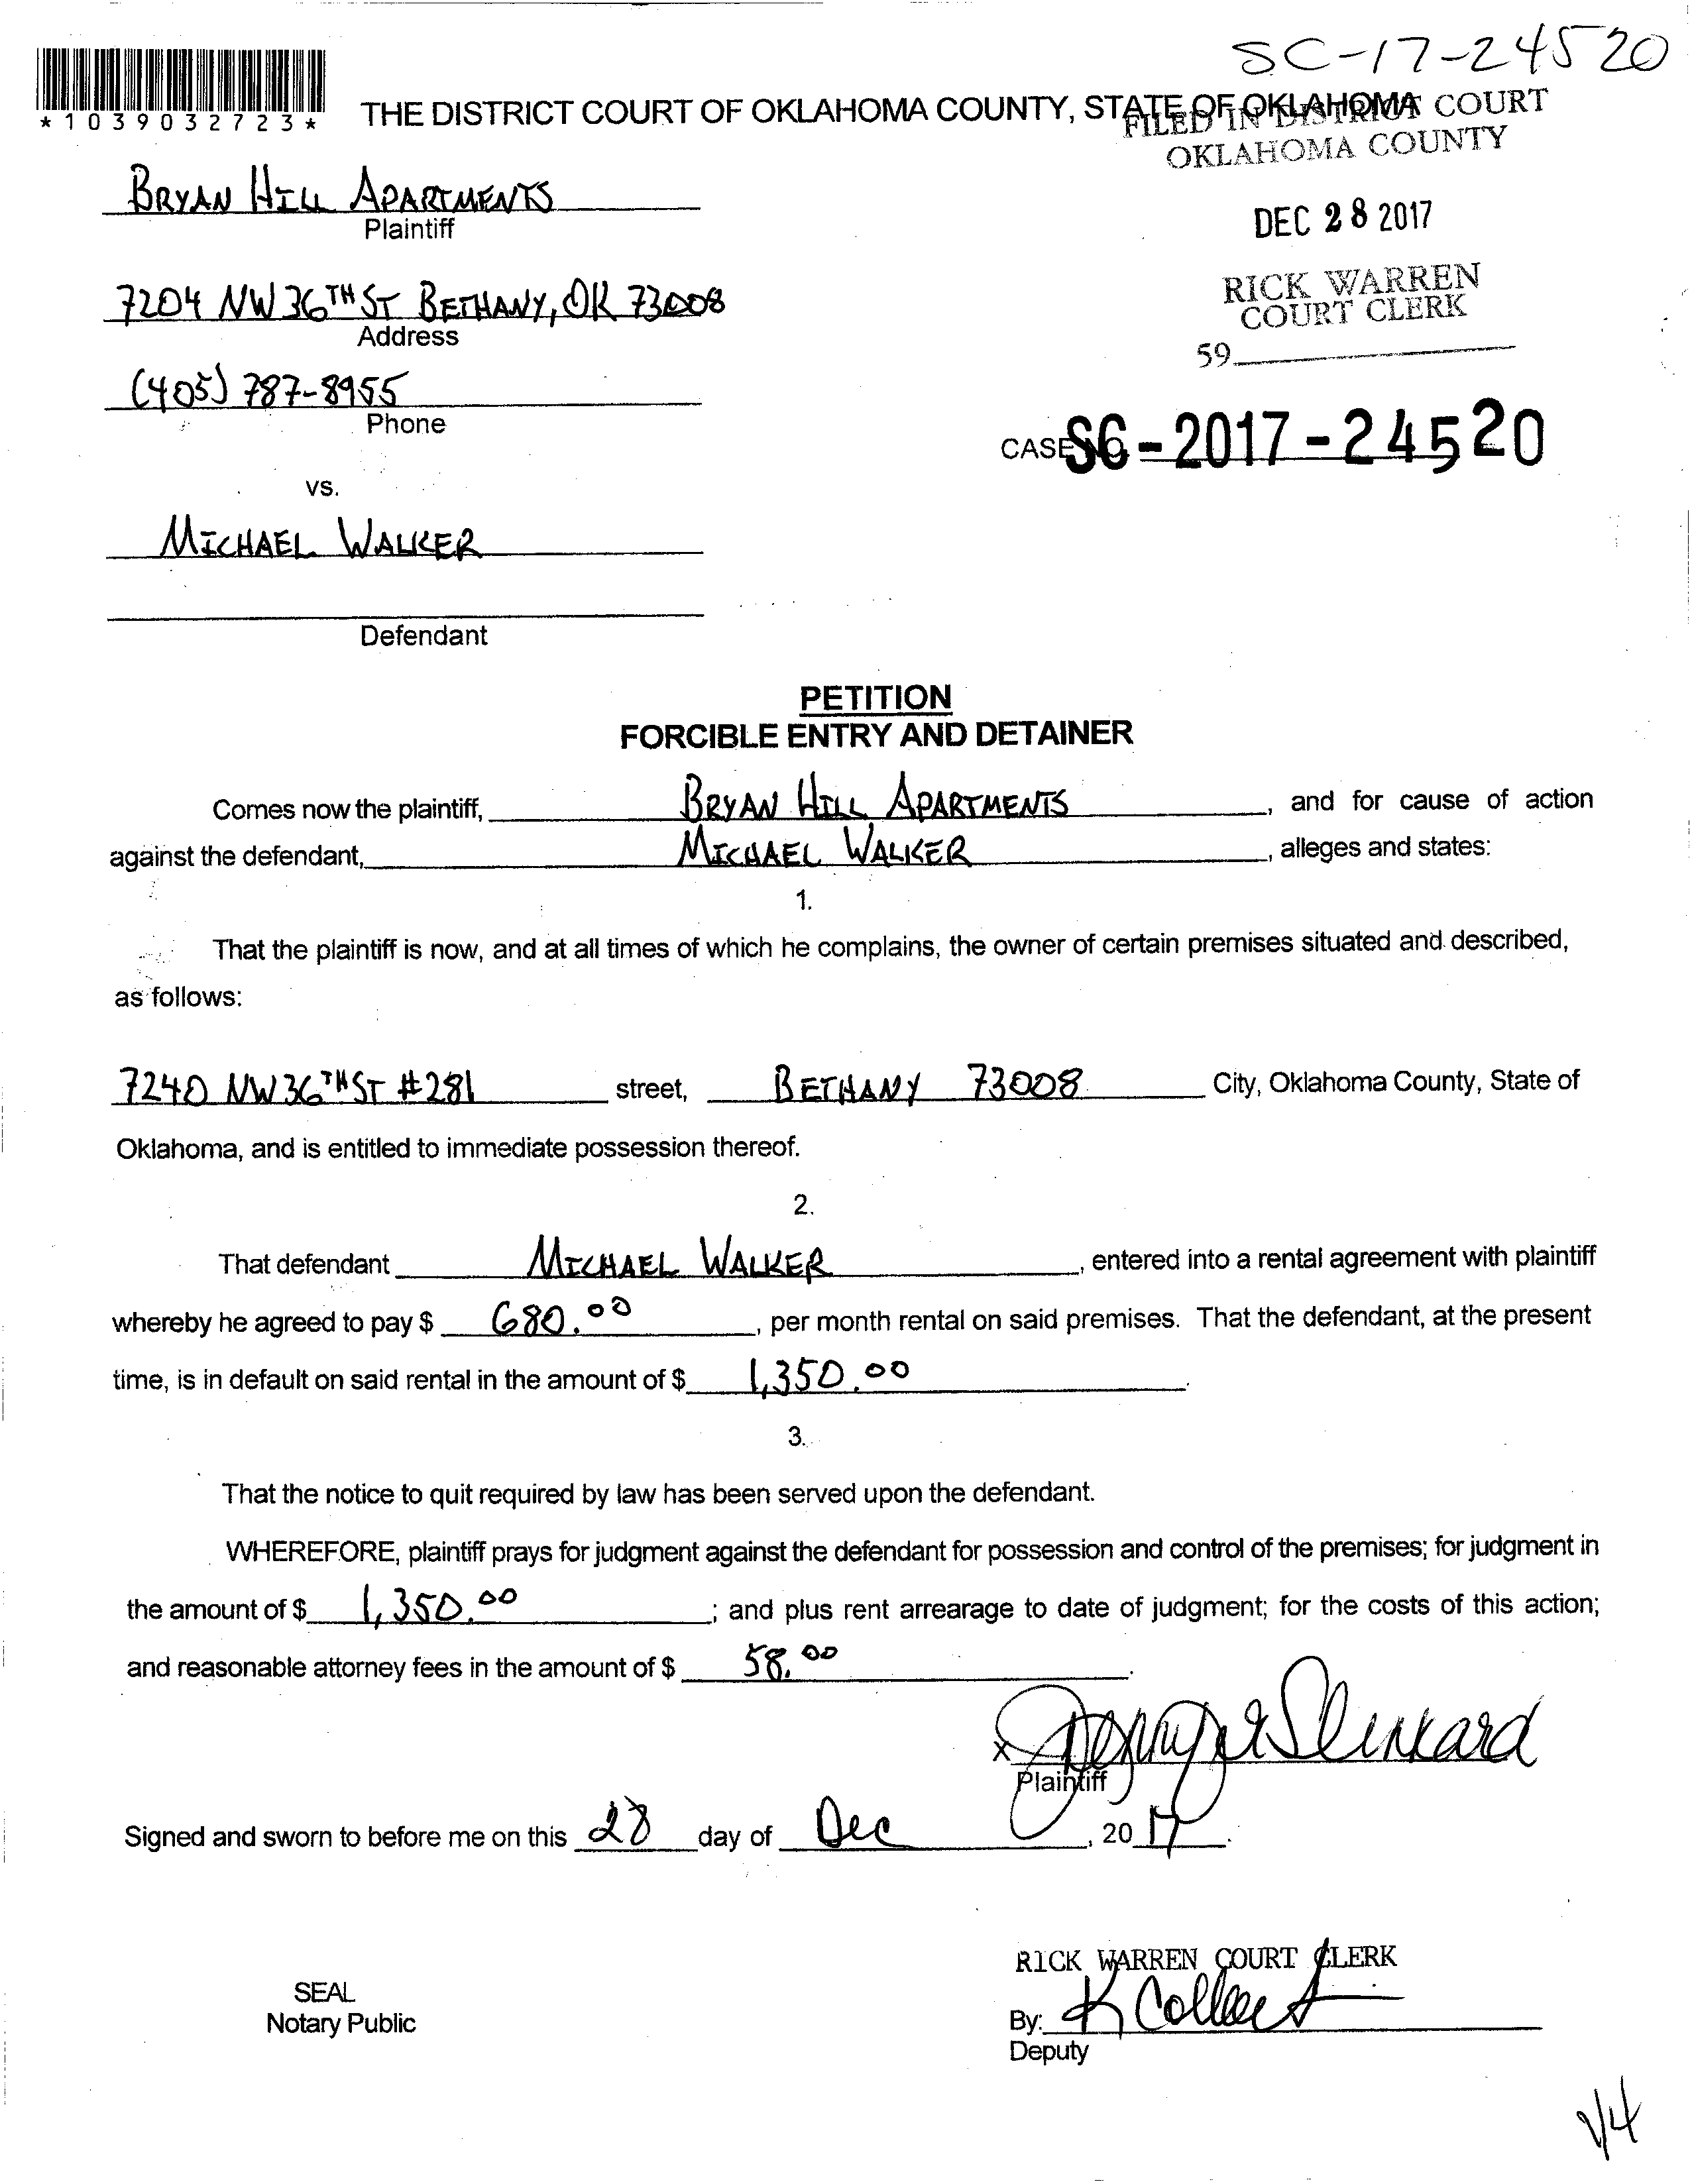 SC-17-24520
*1039032723*
THE DISTRICT COURT OF OKLAHOMA COUNTY, STATE OF OKLAHOMA
FILED IN DISTRICT COURT
OKLAHOMA COUNTY
BRYAN HILL APARTMENTS
Plaintiff
DEC 28 2017
7204 NW 36TH ST BETHANY, OK 73008
Address
RICK WARREN
COURT CLERK
59
(405) 787-8955
Phone
CASE NO. SC-2017-24520
vs.
MICHAEL WALKER
Defendant
PETITION
FORCIBLE ENTRY AND DETAINER
Comes now the plaintiff, BRYAN HILL APARTMENTS, and for cause of action
against the defendant, MICHAEL WALKER, alleges and states:
1.
That the plaintiff is now, and at all times of which he complains, the owner of certain premises situated and described,
as follows:
7240 NW 36TH ST #281 street, BETHANY 73008 City, Oklahoma County, State of
Oklahoma, and is entitled to immediate possession thereof.
2.
That defendant MICHAEL WALKER, entered into a rental agreement with plaintiff
whereby he agreed to pay $ 680.00, per month rental on said premises. That the defendant, at the present
time, is in default on said rental in the amount of $ 1,350.00.
3.
That the notice to quit required by law has been served upon the defendant.
WHEREFORE, plaintiff prays for judgment against the defendant for possession and control of the premises; for judgment in
the amount of $ 1,350.00; and plus rent arrearage to date of judgment; for the costs of this action;
and reasonable attorney fees in the amount of $ 58.00.
x
Plaintiff
Signed and sworn to before me on this 28 day of Dec, 2017.
RICK WARREN COURT CLERK
SEAL
Notary Public
By: K
Deputy